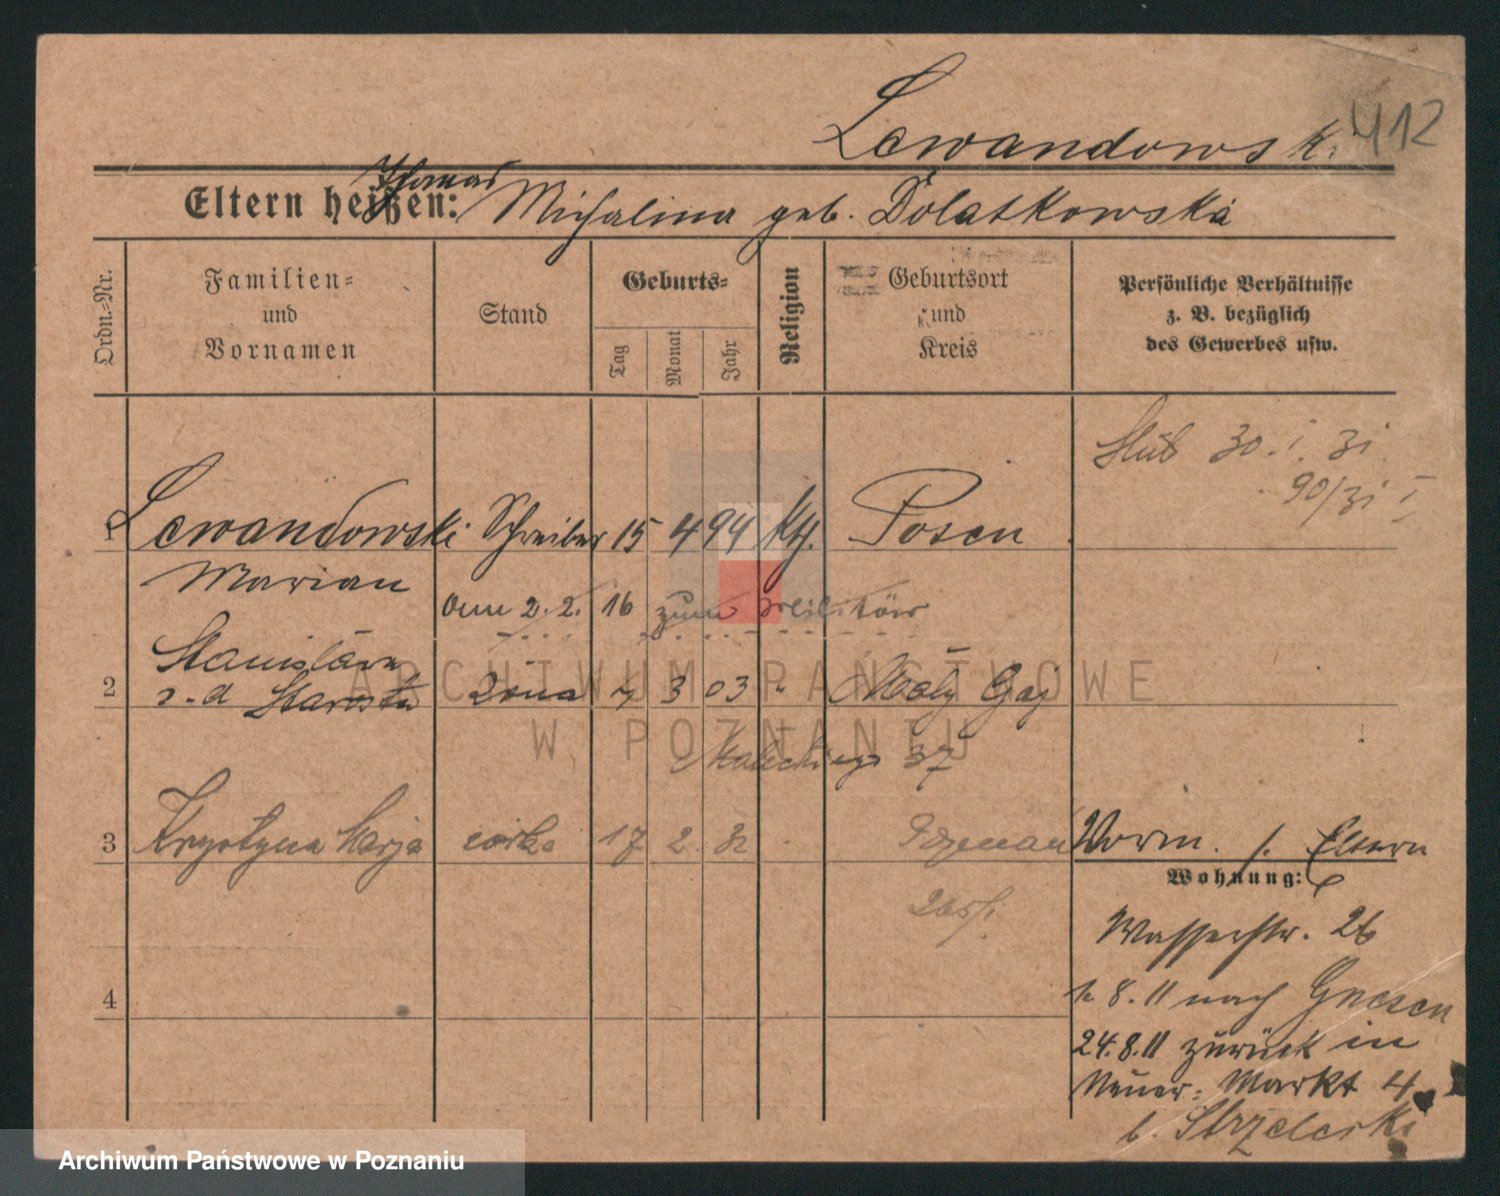 Lewandowski 412
Thomas
Eltern heißen: Michalina geb. Dolatkowska
Ordn.-Nr.
Familien-
und
Vornamen
Stand
Geburts-
Tag
Monat
Jahr
Religion
Geburtsort
und
Kreis
Persönliche Verhältnisse
z. B. bezüglich
des Gewerbes usw.
ślub 30. I. 31
90/31 I
1 Lewandowski Schreiber 15 4 94 Kth. Posen
Marian
Am 2. 2. 16 zum Militär
Stanisława
2 z. d. Starosta żona 7 3 03 " Mały Gaj
Małeckiego 37
3 Krystyna Marja córka 17 2 32 Poznań
Vorm. s. Eltern
Wohnung:
Wasserstr. 26
4
1. 8. 11 nach Gnesen
24.8.11 zurück in
Neuer-Markt 4
b. Strzelecki
ARCHIWUM PAŃSTWOWE
W POZNANIU
Archiwum Państwowe w Poznaniu